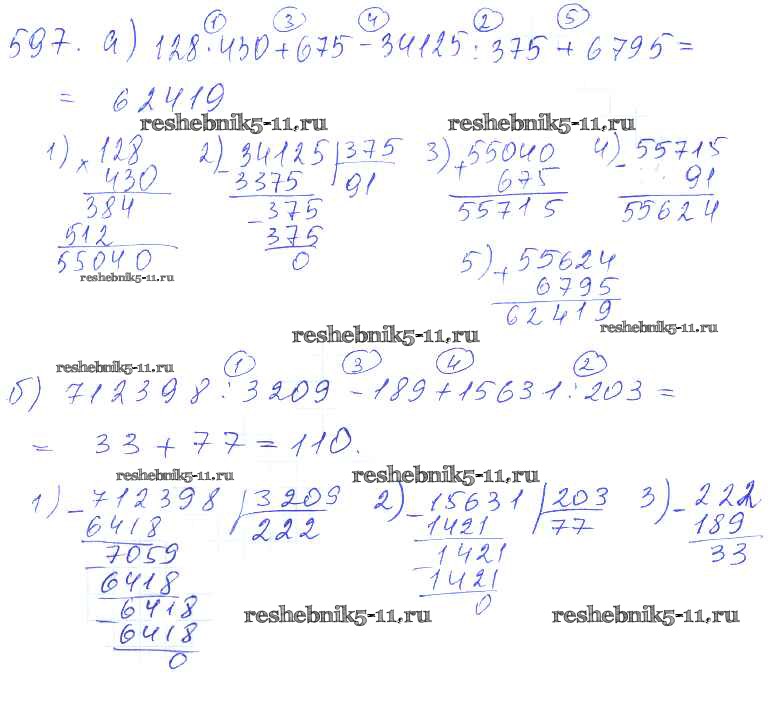 597. а) 128 · 430 + 675 - 34125 : 375 + 6795 =
① ③ ④ ② ⑤
= 62419
reshebnik5-11.ru reshebnik5-11.ru
1) × 128
430
384
512
55040
reshebnik5-11.ru
2) - 34125 | 375
3375 91
- 375
375
0
3) + 55040
675
55715
4) - 55715
91
55624
5) + 55624
6795
62419
reshebnik5-11.ru
reshebnik5-11.ru
reshebnik5-11.ru
① ③ ④ ②
б) 712398 : 3209 - 189 + 15631 : 203 =
= 33 + 77 = 110.
reshebnik5-11.ru reshebnik5-11.ru
1) - 712398 | 3209
6418 222
- 7059
6418
- 6418
6418
0
2) - 15631 | 203
1421 77
- 1421
1421
0
3) - 222
189
33
reshebnik5-11.ru reshebnik5-11.ru